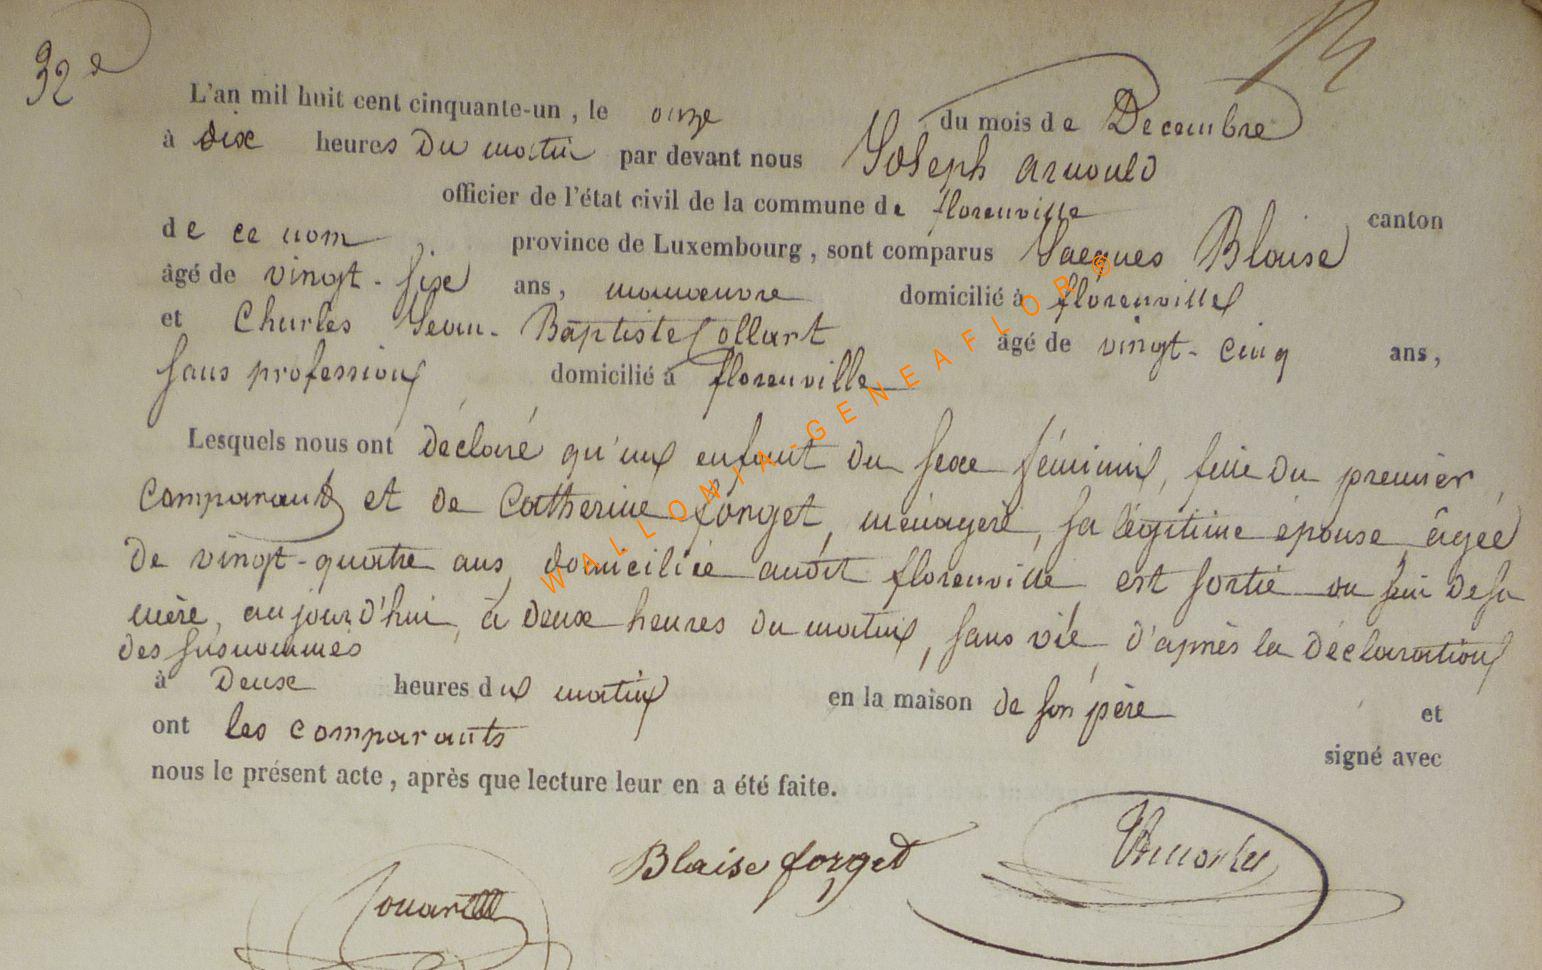 32e
L'an mil huit cent cinquante-un, le onze du mois de Decembre
à dix heures du matin par devant nous Joseph arnould
officier de l'état civil de la commune de florenville canton
de ce nom, province de Luxembourg, sont comparus Jacques Blaise
âgé de vingt-six ans, manœuvre domicilié à florenville
et Charles Jean-Baptiste Collart âgé de vingt-cinq ans,
sans profession domicilié à florenville
Lesquels nous ont déclaré qu'un enfant du sexe féminin, fille du premier
comparant et de Catherine forget, ménagère, sa légitime épouse, âgée
de vingt-quatre ans, domiciliée audit florenville est sortie du sein de sa
mère, aujourd'hui, à deux heures du matin, sans vie, d'après la déclaration
des susnommés
à deux heures du matin en la maison de son père et
ont les comparants signé avec
nous le présent acte, après que lecture leur en a été faite.
Blaise forget
WALLONIA-GENEAFLOR ©